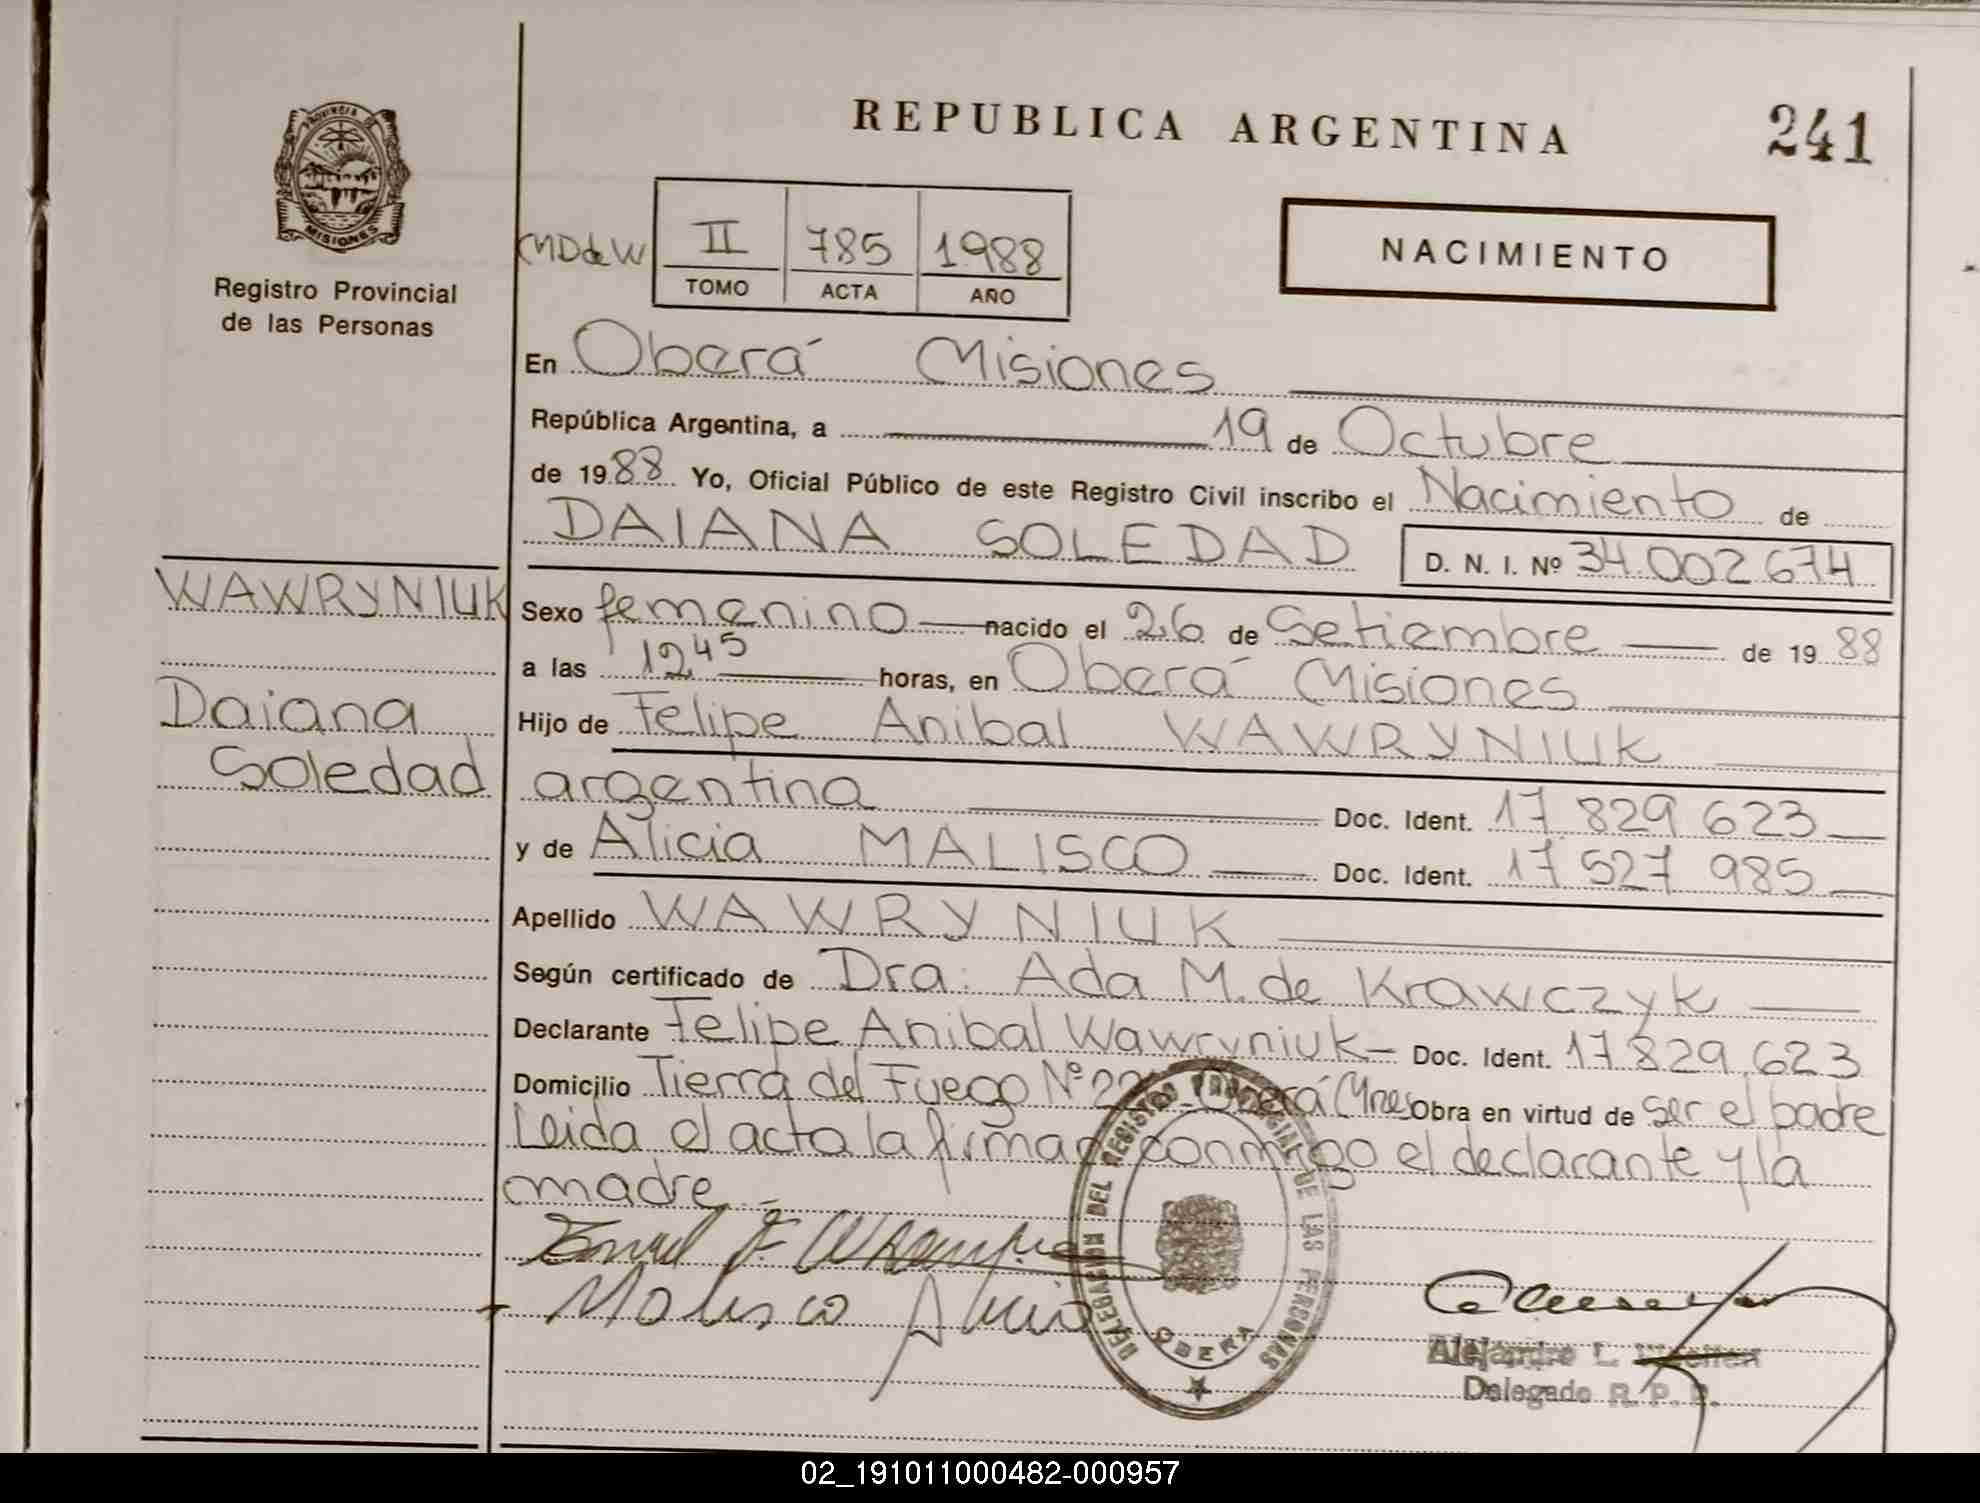 REPUBLICA ARGENTINA
241
PROVINCIA DE
MISIONES
Registro Provincial
de las Personas
MD de W
II 785 1988
TOMO ACTA AÑO
NACIMIENTO
En Oberá Misiones
República Argentina, a 19 de Octubre
de 1988 Yo, Oficial Público de este Registro Civil inscribo el Nacimiento de
DAIANA SOLEDAD D. N. I. Nº 34.002.674
WAWRYNIUK
Daiana
Soledad
Sexo femenino nacido el 26 de Setiembre de 1988
a las 12,45 horas, en Oberá Misiones
Hijo de Felipe Anibal WAWRYNIUK
argentina Doc. Ident. 17 829 623
y de Alicia MALISCO Doc. Ident. 17 527 985
Apellido WAWRYNIUK
Según certificado de Dra. Ada M. de Krawczyk
Declarante Felipe Anibal Wawryniuk Doc. Ident. 17.829.623
Domicilio Tierra del Fuego Nº Oberá Mnes Obra en virtud de ser el padre
Leida el acta la firman conmigo el declarante y la
madre.-
Malisco Alicia
DELEGACION DEL REGISTRO PROVINCIAL DE LAS PERSONAS
OBERA
Alejandro L.
Delegado R. P. P.
02_191011000482-000957